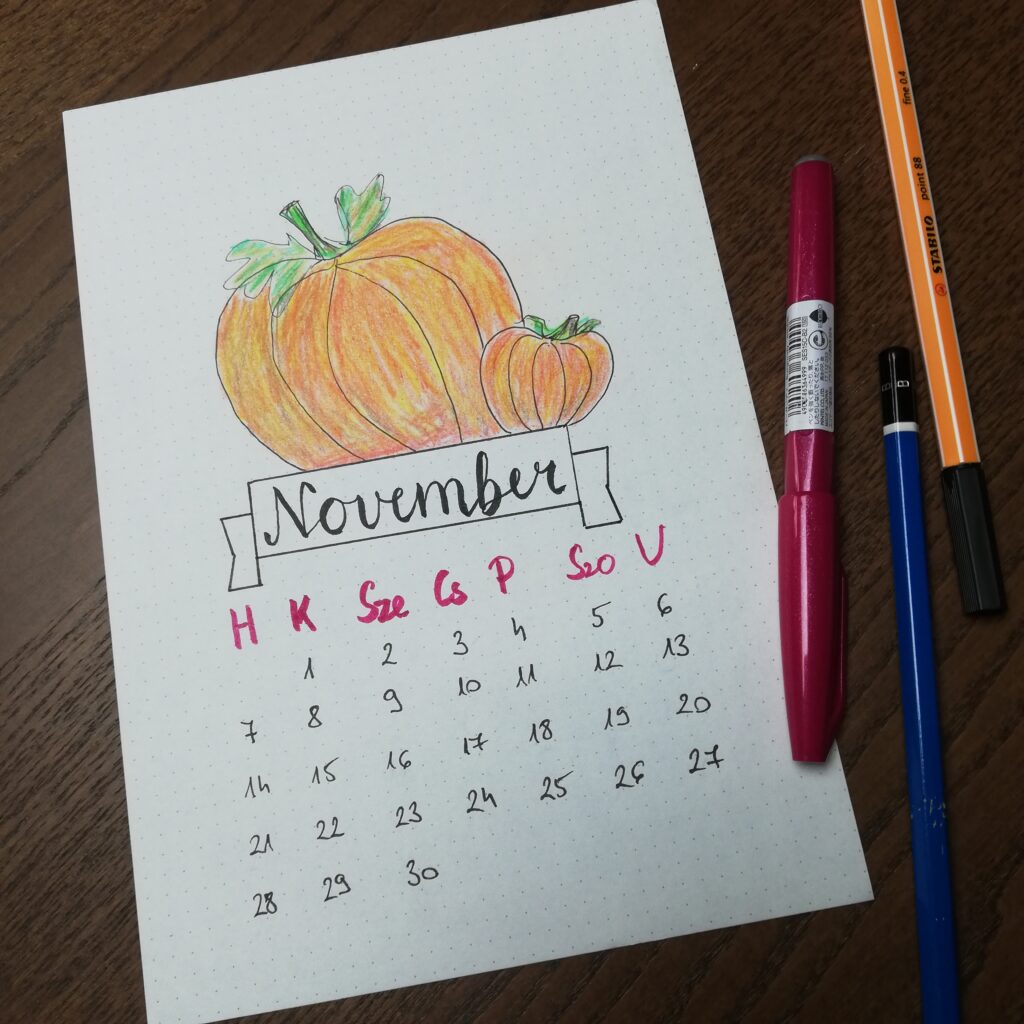 November
H K Sze Cs P Szo V
1 2 3 4 5 6
7 8 9 10 11 12 13
14 15 16 17 18 19 20
21 22 23 24 25 26 27
28 29 30
STABILO point 88 fine 0.4
B